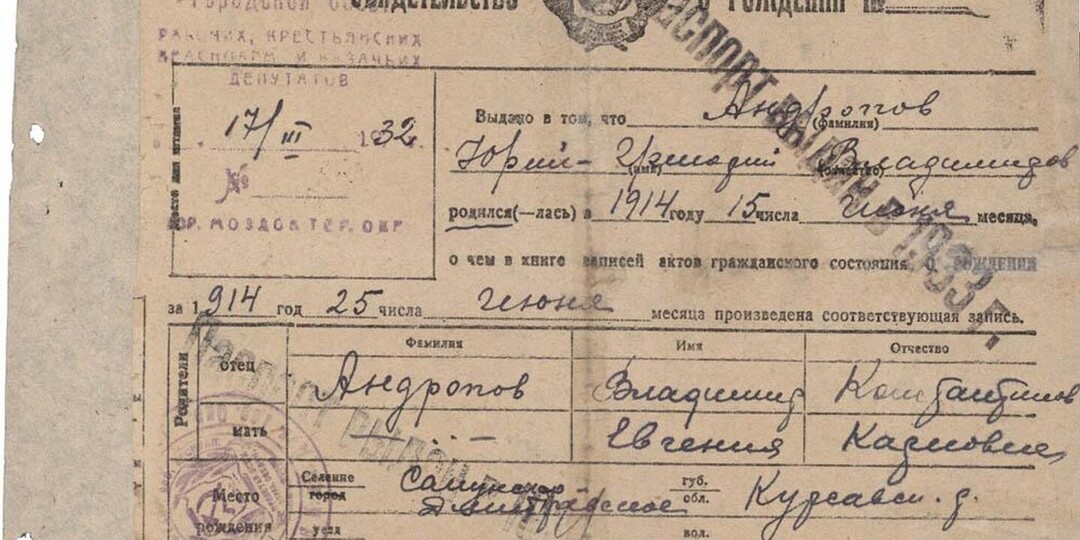 Городской
СВИДЕТЕЛЬСТВО О РОЖДЕНИИ №
РАБОЧИХ, КРЕСТЬЯНСКИХ
КРАСНОАРМ. И КАЗАЧЬИХ
ДЕПУТАТОВ
Место для штампа
17/III 1932.
№
ОР. МОЗДОК ТЕР. ОКР.
Выдано в том, что Андропов
(фамилия)
Юрий-Григорий Владимиров
(имя) (отчество)
родился(-лась) в 1914 году 15 числа июня месяца,
о чем в книге записей актов гражданского состояния о рождении
за 1914 год 25 числа июня месяца произведена соответствующая запись.
Паспорт выдан в 1933 г.
Родители
Фамилия Имя Отчество
отец Андропов Владимир Константинов
мать — „ — Евгения Карловна
Паспорт выдан
Место рождения
Селение
город
губ.
обл. Курсавск. р.
уезд вол.